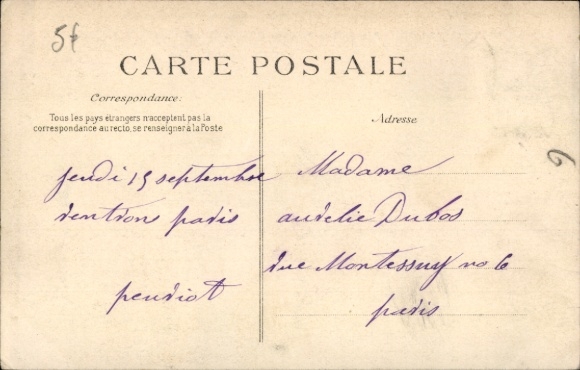 5f
CARTE POSTALE
Correspondance:
Tous les pays étrangers n'acceptent pas la
correspondance au recto, se renseigner à la Poste
Adresse
6
jeudi 15 septembre
rention paris
pendiot
Madame
aurelie Dubos
rue Montessuy no 6
paris